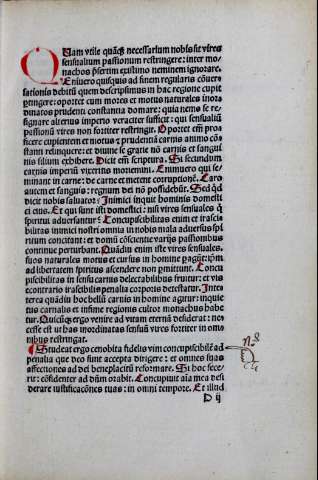 QUam vtile quãtq̃ necessarium nobis sit vires
sensualium passionum restringere: inter mo-
nachos p̃sertim existimo neminem ignorare.
Enimuero quisquis ad finem regularis cõuer
sationis debitũ quem descripsimus in hac regione cupit
ptingere: oportet eum mores et motus naturales inor
dinatos prudenti constantia domare: quia nemo se re-
signare alterius imperio veraciter sufficit: qui sensualiũ
passionũ vires non fortiter restringit. Oportet em̃ proa
ficere cupientem et motus prudentia carnis animo cõ
stanti relinquere: et diuine se gratie nõ carnis et sangui
nis filium exhibere. Dicit em̃ scriptura. Si secundum
carnis imperiũ vixeritis moriemini. Enimuero qui se-
minant in carne: de carne et metent corruptionẽ. Caro
autem et sanguis: regnum dei nõ possidebũt. Sed qd̃
dicit nobis saluator: Inimici inquit hominis domesti
ci eius. Et qui sunt isti domestici: nisi vires sensuales q̃
spiritui aduersantur: Concupiscibilitas enim et irascibi
bilitas inimici nostri omnia in nobis mala aduersus spi
ritum concitant: et domũ cõscientie varijs passionibus
continue perturbant. Quãdiu enim iste vires sensuales
suos naturales motus et cursus in homine pagũt: ipm̃
ad libertatem spiritus ascendere non pmittunt. Concu
piscibilitas in sensu carnis delectabilibus fruitur: et vis
econtrario irascibilis penalia corporis detestatur. Inte
terea quãdiu hoc bellũ carnis in homine agitur: inquie
tus carnalis et infime regionis cultor monachus habe
tur. Quicũq̃ ergo venire ad vitam eternã desiderat: ne
cesse est vt has inordinatas sensuũ vires fortiter in omi
nibus restringat.
Studeat ergo cenobita fidelis vim concupiscibilẽ ad
penalia que deo sunt accepta dirigere: et omnes suas
affectiones ad dei beneplacitũ reformare. Si hoc fece
rit: cõfidenter ad dñm orabit. Concupiuit aĩa mea desi
derare iustificatiões tuas: in omni tempore. Et illud
D ij